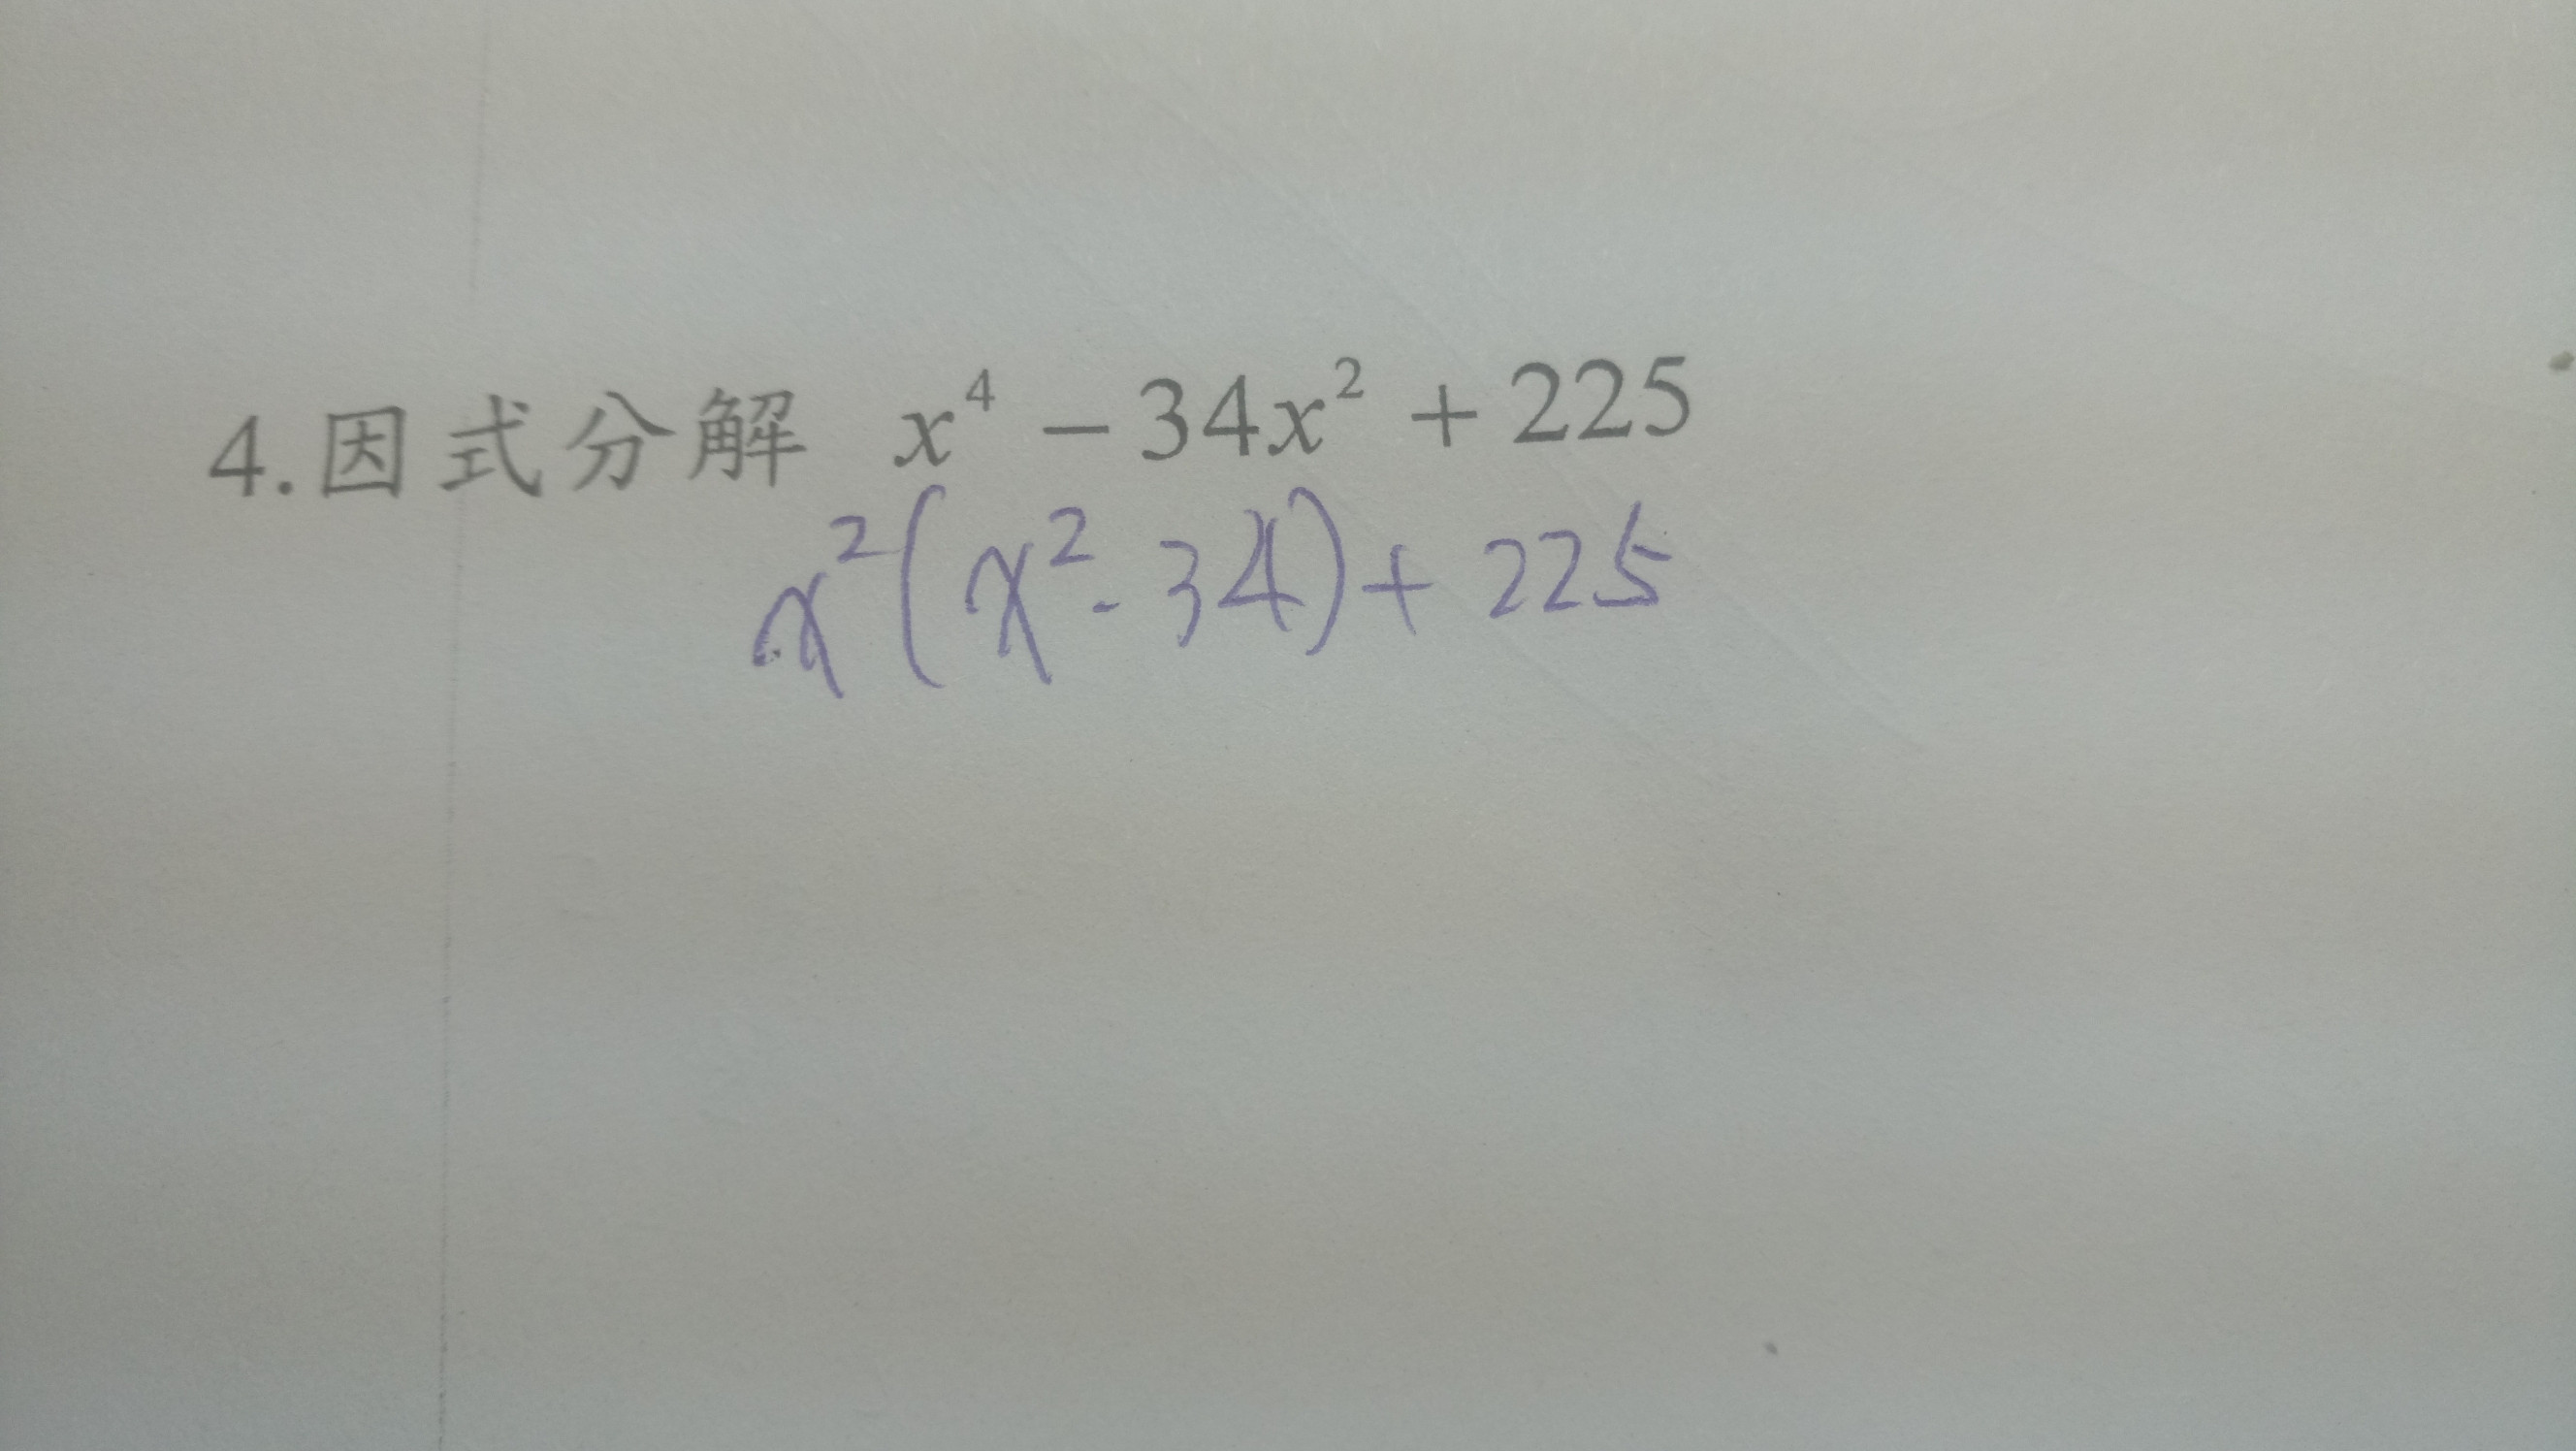 4.因式分解 x⁴ − 34x² + 225
x²(x² - 34) + 225